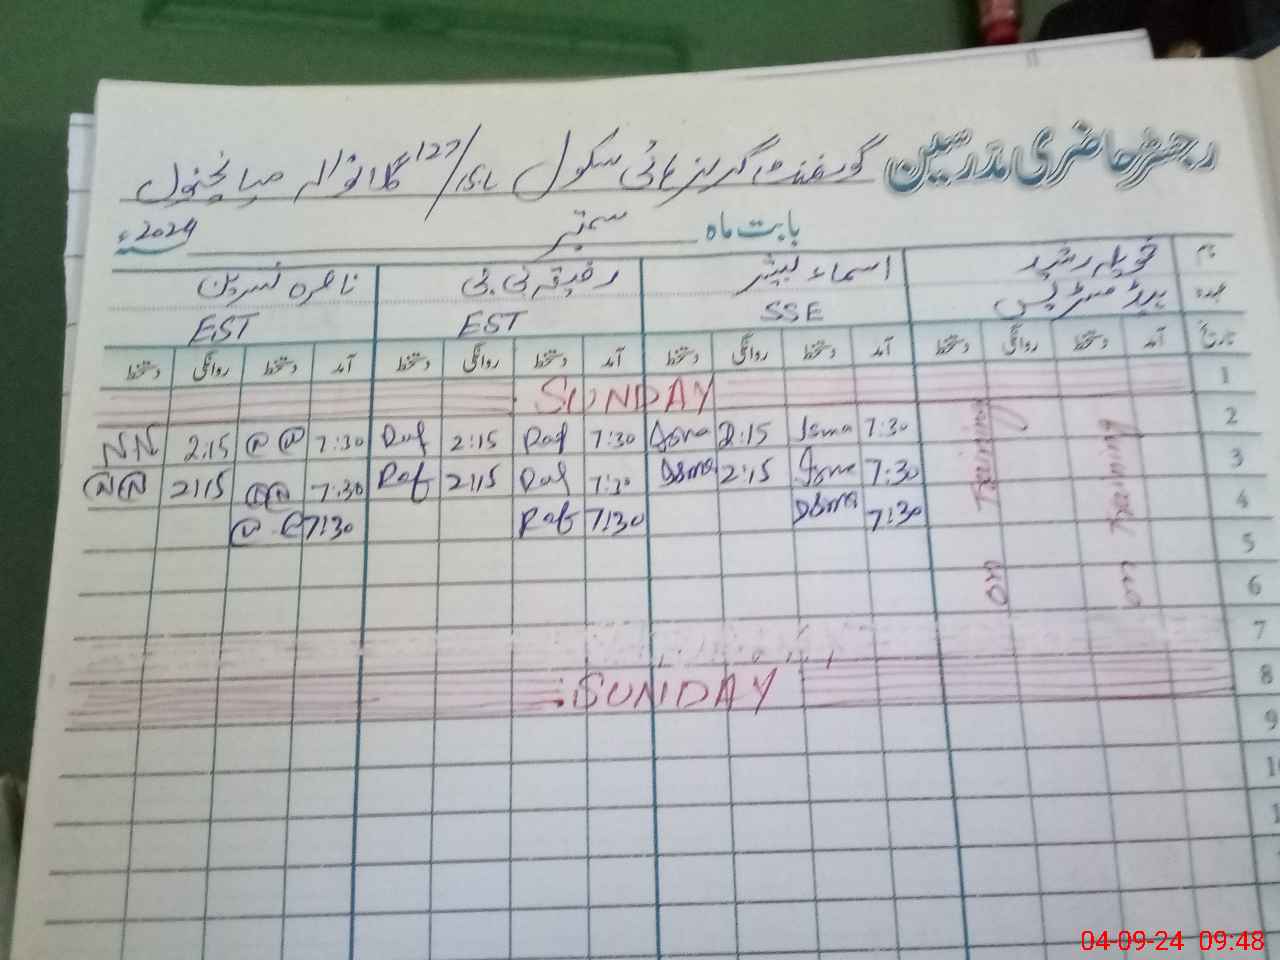 رجسٹر حاضری مدرسین گورنمنٹ گرلز ہائی سکول 127/15L میانچنوں
بابت ماہ ستمبر 2024ء
نام رشید اسماء بشیر رفیقہ بی بی ناصرہ نسرین
عہدہ ہیڈ مسٹریس SSE EST EST
تاریخ آمد دستخط روانگی دستخط آمد دستخط روانگی دستخط آمد دستخط روانگی دستخط آمد دستخط روانگی دستخط
1 SUNDAY
2 7:30 Asma 2:15 Asma 7:30 Raf 2:15 Raf 7:30 2:15 NN
3 7:30 Asma 2:15 Asma 7:30 Raf 2:15 Raf 7:30 2:15
4 7:30 Asma 7:30 Raf 7:30
5
6
7
8 SUNDAY
9
on Training
on Training
04-09-24 09:48